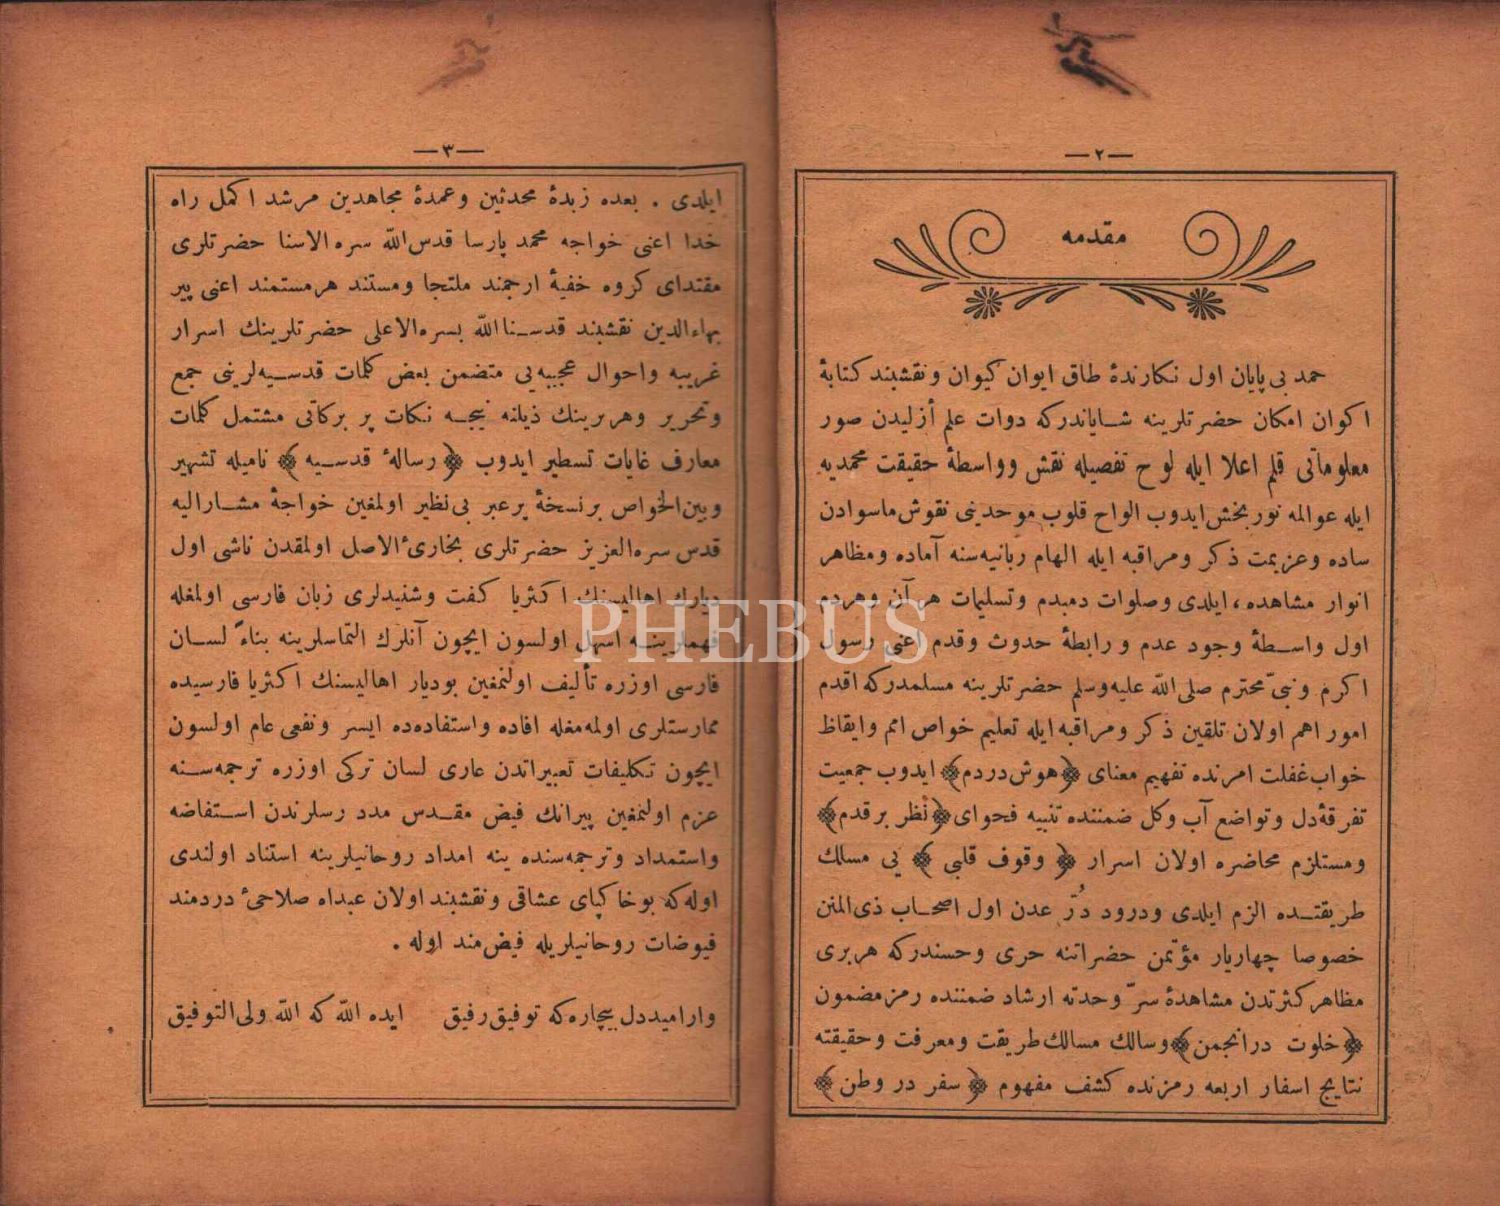 — ٢ —
مقدمه
حمد بی پایان اول نكارندهٔ طاق ایوان كیوان و نقشبند كتابهٔ
اكوان امكان حضرتلرینه شایاندركه دوات علم أزلیدن صور
معلوماتی قلم اعلا ایله لوح تفصیله نقش وواسطهٔ حقیقت محمدیه
ایله عوالمه نوربخش ایدوب الواح قلوب موحدینی نقوش ماسوادن
ساده وعزیمت ذكر ومراقبه ایله الهام ربانیه‌سنه آماده ومظاهر
انوار مشاهده، ایلدی وصلوات دمبدم وتسلیمات هرآن وهردم
اول واسطهٔ وجود عدم و رابطهٔ حدوث وقدم اعنی رسول
اكرم ونبیّ محترم صلی الله علیه وسلم حضرتلرینه مسلمدركه اقدم
امور اهم اولان تلقین ذكر ومراقبه ایله تعلیم خواص امم وایقاظ
خواب غفلت امرنده تفهیم معنای ﴿هوش دردم﴾ ایدوب جمعیت
تفرقهٔ دل وتواضع آب وكل ضمننده تنبیه فحوای ﴿نظر برقدم﴾
ومستلزم محاضره اولان اسرار ﴿ وقوف قلبی ﴾ یی مسلك
طریقتده الزم ایلدی ودرود دُرّ عدن اول اصحاب ذی‌المنن
خصوصا چهاریار مؤتمن حضراتنه حری وحسندركه هربری
مظاهر كثرتدن مشاهدهٔ سرّ وحدته ارشاد ضمننده رمز مضمون
﴿خلوت درانجمن﴾ وسالك مسالك طریقت ومعرفت وحقیقته
نتایج اسفار اربعه رمزنده كشف مفهوم ﴿ سفر در وطن ﴾
— ٣ —
ایلدی . بعده زبدهٔ محدثین وعمدهٔ مجاهدین مرشد اكمل راه
خدا اعنی خواجه محمد پارسا قدس الله سره الاسنا حضرتلری
مقتدای كروه خفیهٔ ارجمند ملتجا ومستند هرمستمند اعنی پیر
بهاءالدین نقشبند قدسنا الله بسره الاعلی حضرتلرینك اسرار
غریبه واحوال عجیبه‌یی متضمن بعض كلمات قدسیه‌لرینی جمع
وتحریر وهربرینك ذیلنه نیجه نكات پر بركاتی مشتمل كلمات
معارف غایات تسطیر ایدوب ﴿ رسالهٔ قدسیه ﴾ نامیله تشهیر
وبین الخواص برنسخهٔ پرعبر بی نظیر اولمغین خواجهٔ مشارالیه
قدس سره العزیز حضرتلری بخاریٔ الاصل اولمقدن ناشی اول
دیارك اهالیسنك اكثریا كفت وشنیدلری زبان فارسی اولمغله
فهملرینه اسهل اولسون ایچون آنلرك التماسلرینه بناءً لسان
فارسی اوزره تألیف اولنمغین بودیار اهالیسنك اكثریا فارسیده
ممارستلری اولمه‌مغله افاده واستفاده‌ده ایسر ونفعی عام اولسون
ایچون تكلیفات تعبیراتدن عاری لسان تركی اوزره ترجمه‌سنه
عزم اولنمغین پیرانك فیض مقدس مدد رسلرندن استفاضه
واستمداد وترجمه‌سنده ینه امداد روحانیلرینه استناد اولندی
اوله‌كه بوخاكپای عشاقی ونقشبند اولان عبداه صلاحیٔ دردمند
فیوضات روحانیلریله فیض‌مند اوله .
وار امید دل بیچاره كه توفیق رفیق ایده الله كه الله ولی التوفیق
PHEBUS